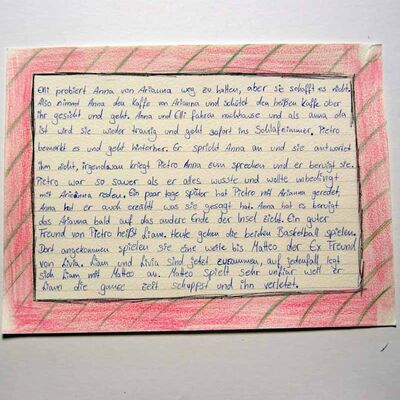 Elli probiert Anna von Arianna weg zu halten, aber sie schafft es nicht.
Also nimmt Anna den Kaffe von Arianna und schütet den heißen Kaffe über
ihr gesicht und geht. Anna und Elli fahren nachhause und als anna da
ist wird sie wieder traurig und geht sofort ins Schlafzimmer. Pietro
bemerkt es und geht hinterher. Er spricht Anna an und sie antwortet
ihm nicht, irgendwan kriegt Pietro Anna zum sprechen und er beruigt sie.
Pietro war so sauer als er alles wusste und wollte unbedingt
mit Arianna reden. Ein paar tage später hat Pietro mit Arianna geredet,
Anna hat er auch erzählt was sie gesagt hat. Anna hat es beruigt
das Arianna bald auf das andere Ende der Insel zieht. Ein guter
Freund von Pietro heißt Liam. Heute gehen die beiden Basketball spielen.
Dort angekommen spielen sie eine weile bis Matteo der Ex Freund
von Livia. Liam und Livia sind jetzt zusammen, auf jedenfall legt
sich Liam mit Matteo an. Matteo spielt sehr unfair weil er
Liam die ganze zeit schuppst und ihn verletzt.